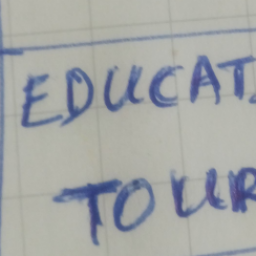 EDUCAT
TOUR